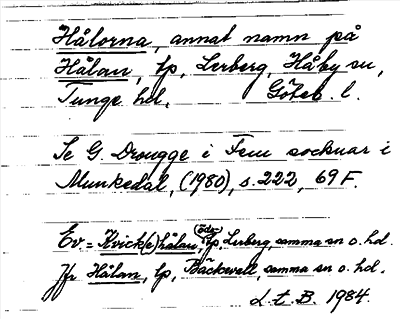 Hålorna, annat namn på
Hålan, tp, Lerberg, Håby sn,
Tunge hd, Göteb. l.
Se G. Drougge i Fem socknar i
Munkedal, (1980), s. 222, 69 F.
Ev = Kvick(e)hålan, öde tp, Lerberg, samma sn o. hd.
Jfr Hålan, tp, Bäckevell, samma sn o. hd.
L.t.B. 1984.